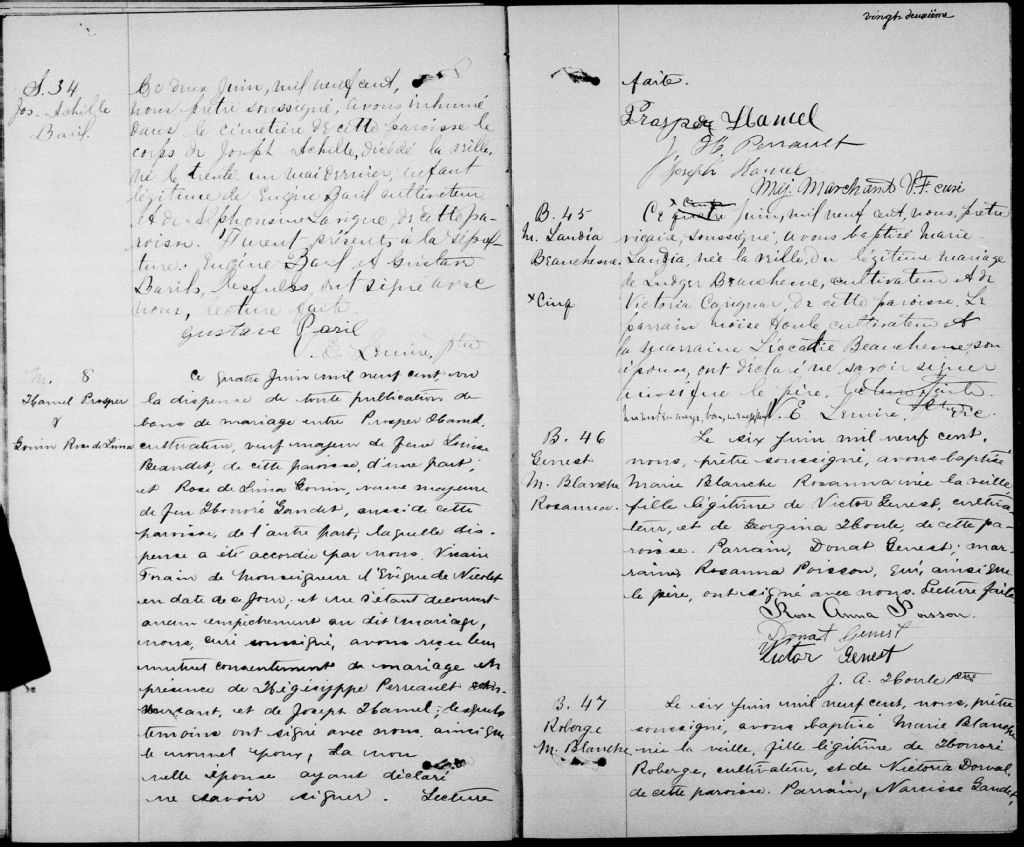 S. 34
Jos. Achille
Baril.
Ce deux Juin, mil neuf cent,
nous prêtre soussigné, avons inhumé
dans le cimetière de cette paroisse le
corps de Joseph Achille, décédé la veille,
né le trente un mai dernier, enfant
légitime de Eugène Baril cultivateur
et de Alphonsine Lavigne, de cette pa-
roisse. Furent présents, à la sépul-
ture. Eugène Baril et Gustave
Barils, lesquels, ont signé avec
nous, lecture faite.
Gustave Baril
E. Lemire, ptre
M. 8
Hamel Prosper
&
Gonin Rose de Lima
Ce quatre Juin mil neuf cent, vu
la dispense de toute publication de
bans de mariage entre Prosper Hamel,
cultivateur, veuf majeur de feue Louise
Beaudet, de cette paroisse, d'une part;
et Rose de Lima Gonin, veuve majeure
de feu Honoré Gaudet, aussi de cette
paroisse, de l'autre part; laquelle dis-
pense a été accordée par nous, Vicaire
Forain de Monseigneur l'Evêque de Nicolet
en date de ce jour; et ne s'étant découvert
aucun empêchement au dit mariage,
nous, curé soussigné, avons reçu leur
mutuel consentement de mariage en
présence de Hégésippe Perreault
et de Joseph Hamel; lesquels
temoins ont signé avec nous, ainsi que
le nouvel époux, la nou
velle épouse ayant déclaré
ne savoir signer. Lecture
vingt deuxième
faite.
Prosper Hamel
J. H. Perrault
Joseph Hamel
Mij. Marchand V.F. curé
B. 45
M. Landia
Beauchesne.
x Cinq
x Cinq
Ce quatre Juin, mil neuf cent, nous, prêtre
vicaire, soussigné, avons baptisé Marie
Landia, née la veille, du légitime mariage
de Ludger Beauchesne, cultivateur et de
Victoria Carignan, de cette paroisse. Le
parrain Moïse Houle cultivateur et
la marraine Léocadie Beauchesne, son
épouse, ont déclaré ne savoir signer
ainsi que le père. Lecture faite.
E. Lemire, Ptre, Vic.
B. 46
Genest
M. Blanche
Rosanna.
Le six Juin mil neuf cent,
nous, prêtre soussigné, avons baptisé
Marie Blanche Rosanna née la veille
fille légitime de Victor Genest, cultiva-
teur, et de Georgina Houle, de cette pa-
roisse. Parrain, Donat Genest; mar-
raine, Rosanna Poisson, qui, ainsi que
le père, ont signé avec nous. Lecture faite.
Rose Anna Poisson.
Donat Genest
Victor Genest
J. A. Houle ptre
B. 47
Roberge
M. Blanche
Le six Juin mil neuf cent, nous, prêtre
soussigné, avons baptisé Marie Blanche
née la veille, fille légitime de Honoré
Roberge, cultivateur, et de Victoria Dorval,
de cette paroisse. Parrain, Narcisse Gaudet,